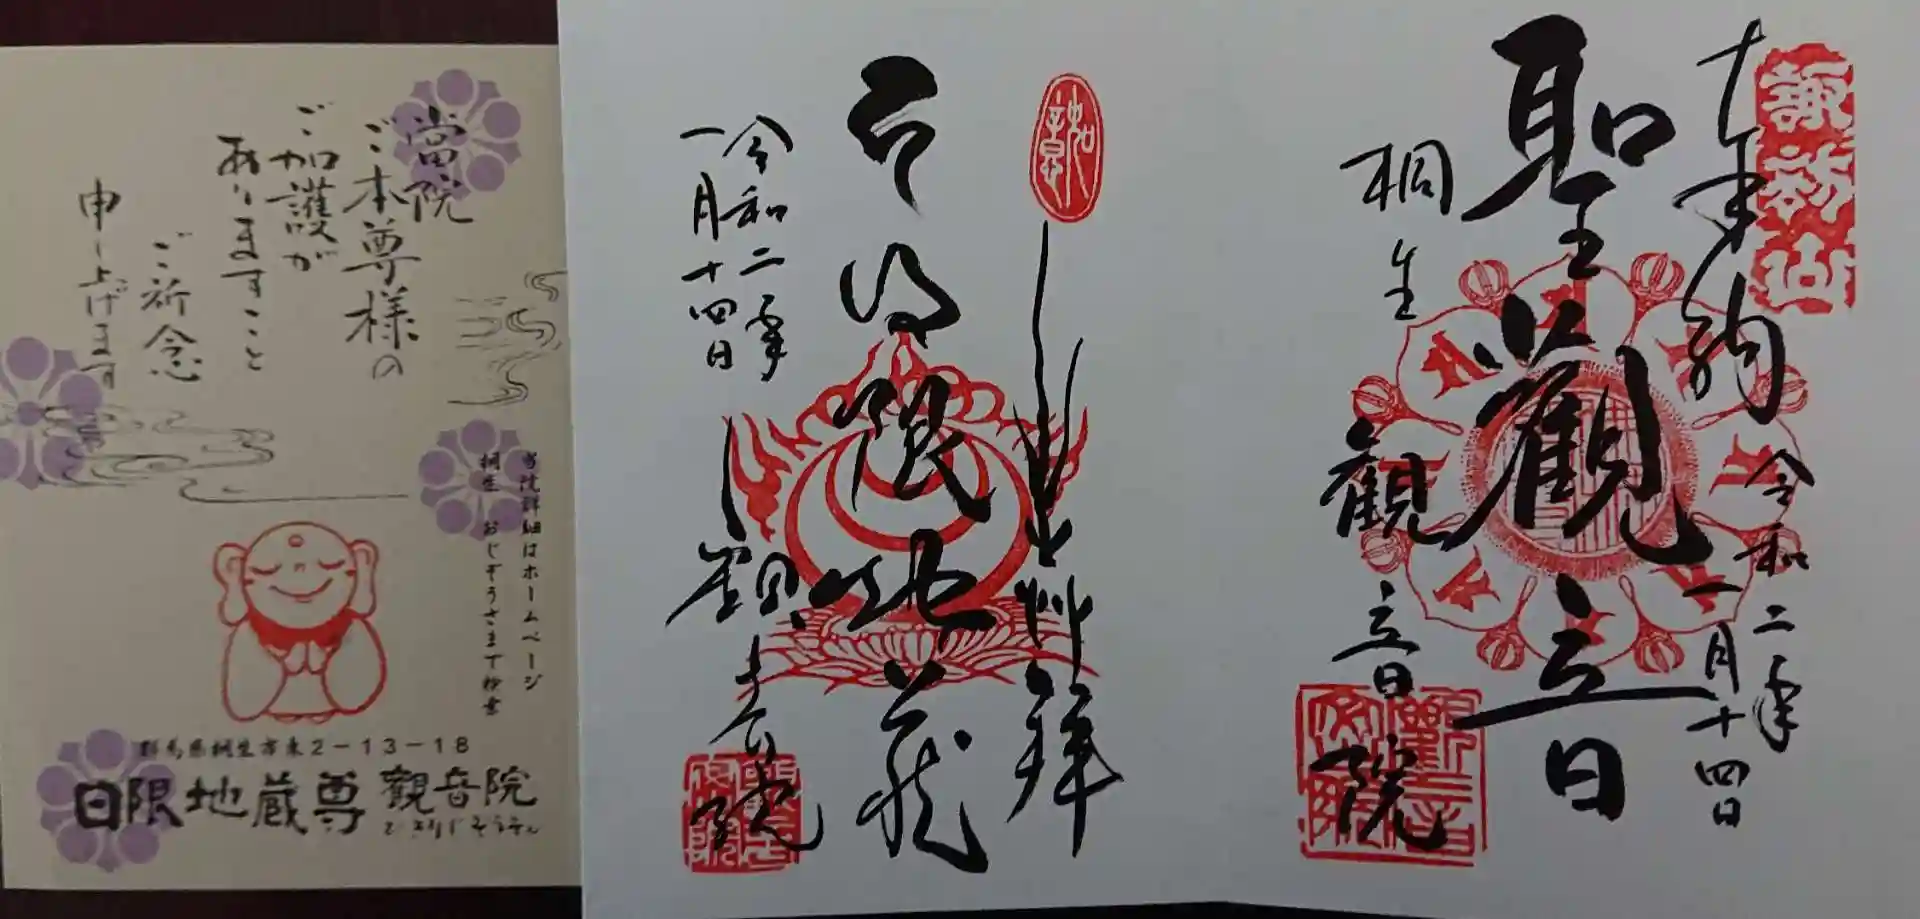 當院
ご本尊様の
ご加護が
ありますこと
ご祈念
申し上げます
当院詳細はホームページ
桐生 おじぞうさまで検索
群馬県桐生市東2-13-18
日限地蔵尊 観音院
ひぎりじぞうそん
如意
奉拝
日限地蔵
令和二年
一月十四日
観音院
諏訪山
令和二年
一月十四日
聖観音
桐生
観音院